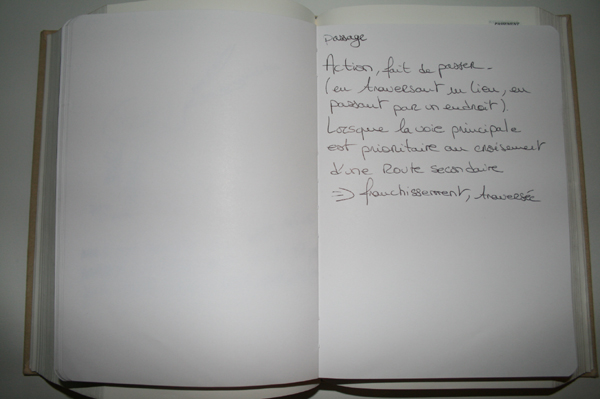 passage
Action, fait de passer -
(en traversant un lieu, en
passant par un endroit).
Lorsque la voie principale
est prioritaire au croisement
d'une Route secondaire
=> franchissement, traversée